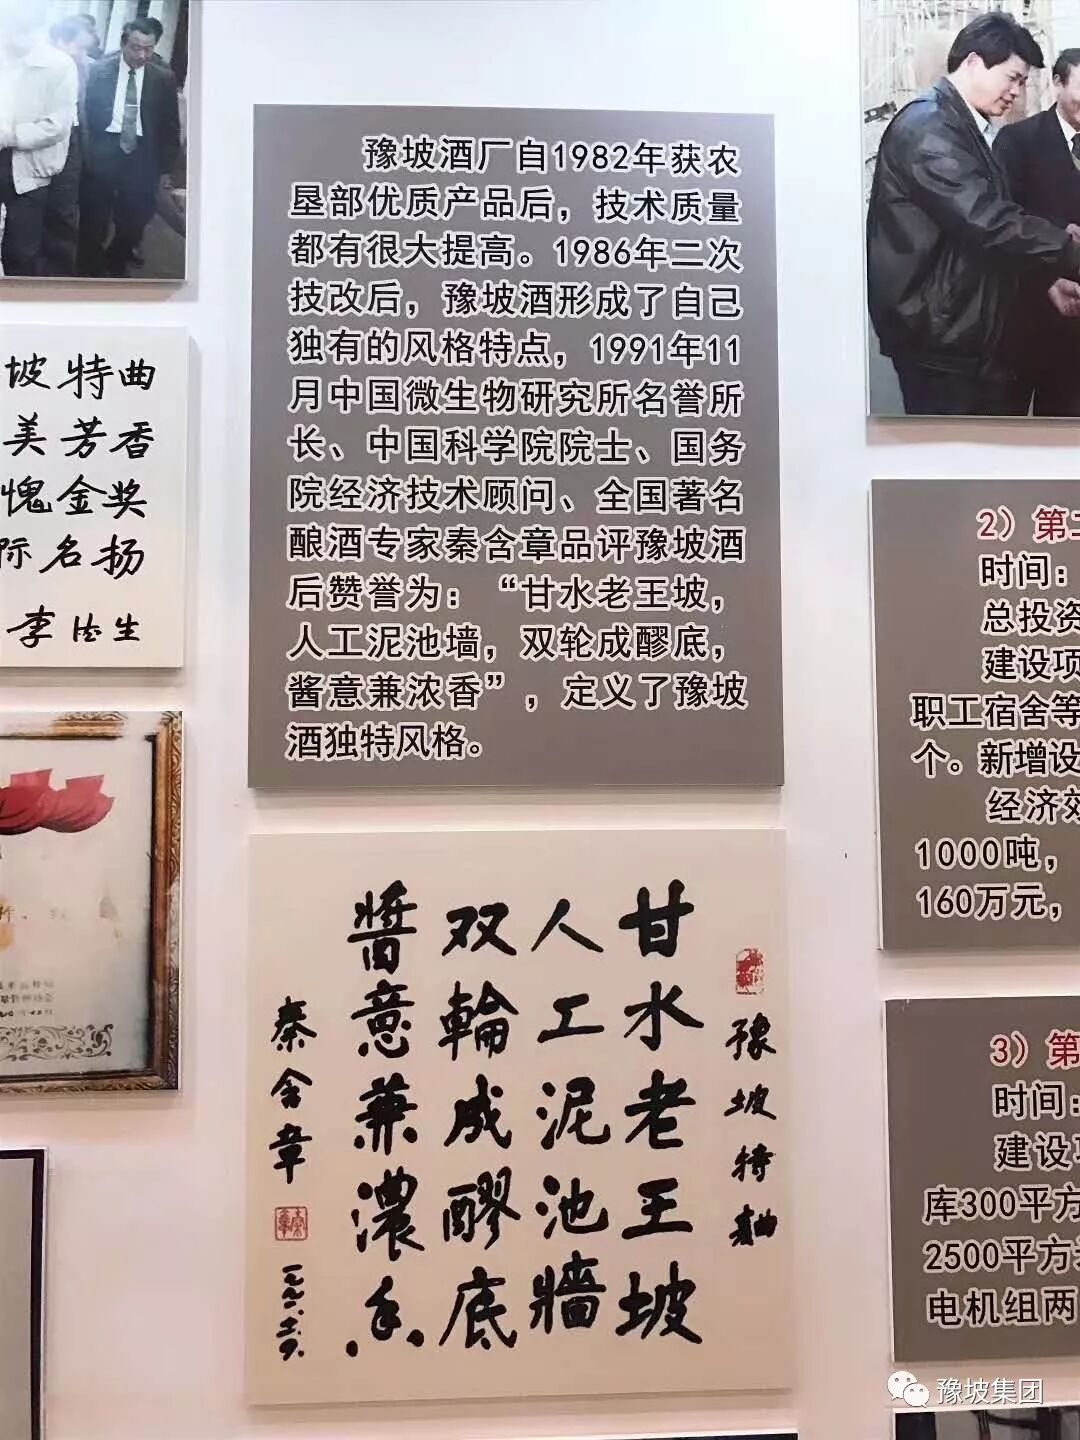 豫坡酒厂自1982年获农
垦部优质产品后，技术质量
都有很大提高。1986年二次
技改后，豫坡酒形成了自己
独有的风格特点，1991年11
月中国微生物研究所名誉所
长、中国科学院院士、国务
院经济技术顾问、全国著名
酿酒专家秦含章品评豫坡酒
后赞誉为：“甘水老王坡，
人工泥池墙，双轮成醪底，
酱意兼浓香”，定义了豫坡
酒独特风格。
坡特曲
美芳香
愧金奖
际名扬
李德生
豫坡特麯
甘水老王坡
人工泥池牆
双輪成醪底
醬意兼濃香
秦含章
2）第二
时间：
总投资
建设项
职工宿舍等
个。新增设
经济效
1000吨，
160万元，
3）第
时间：
建设项
库300平方
2500平方米
电机组两
豫坡集团